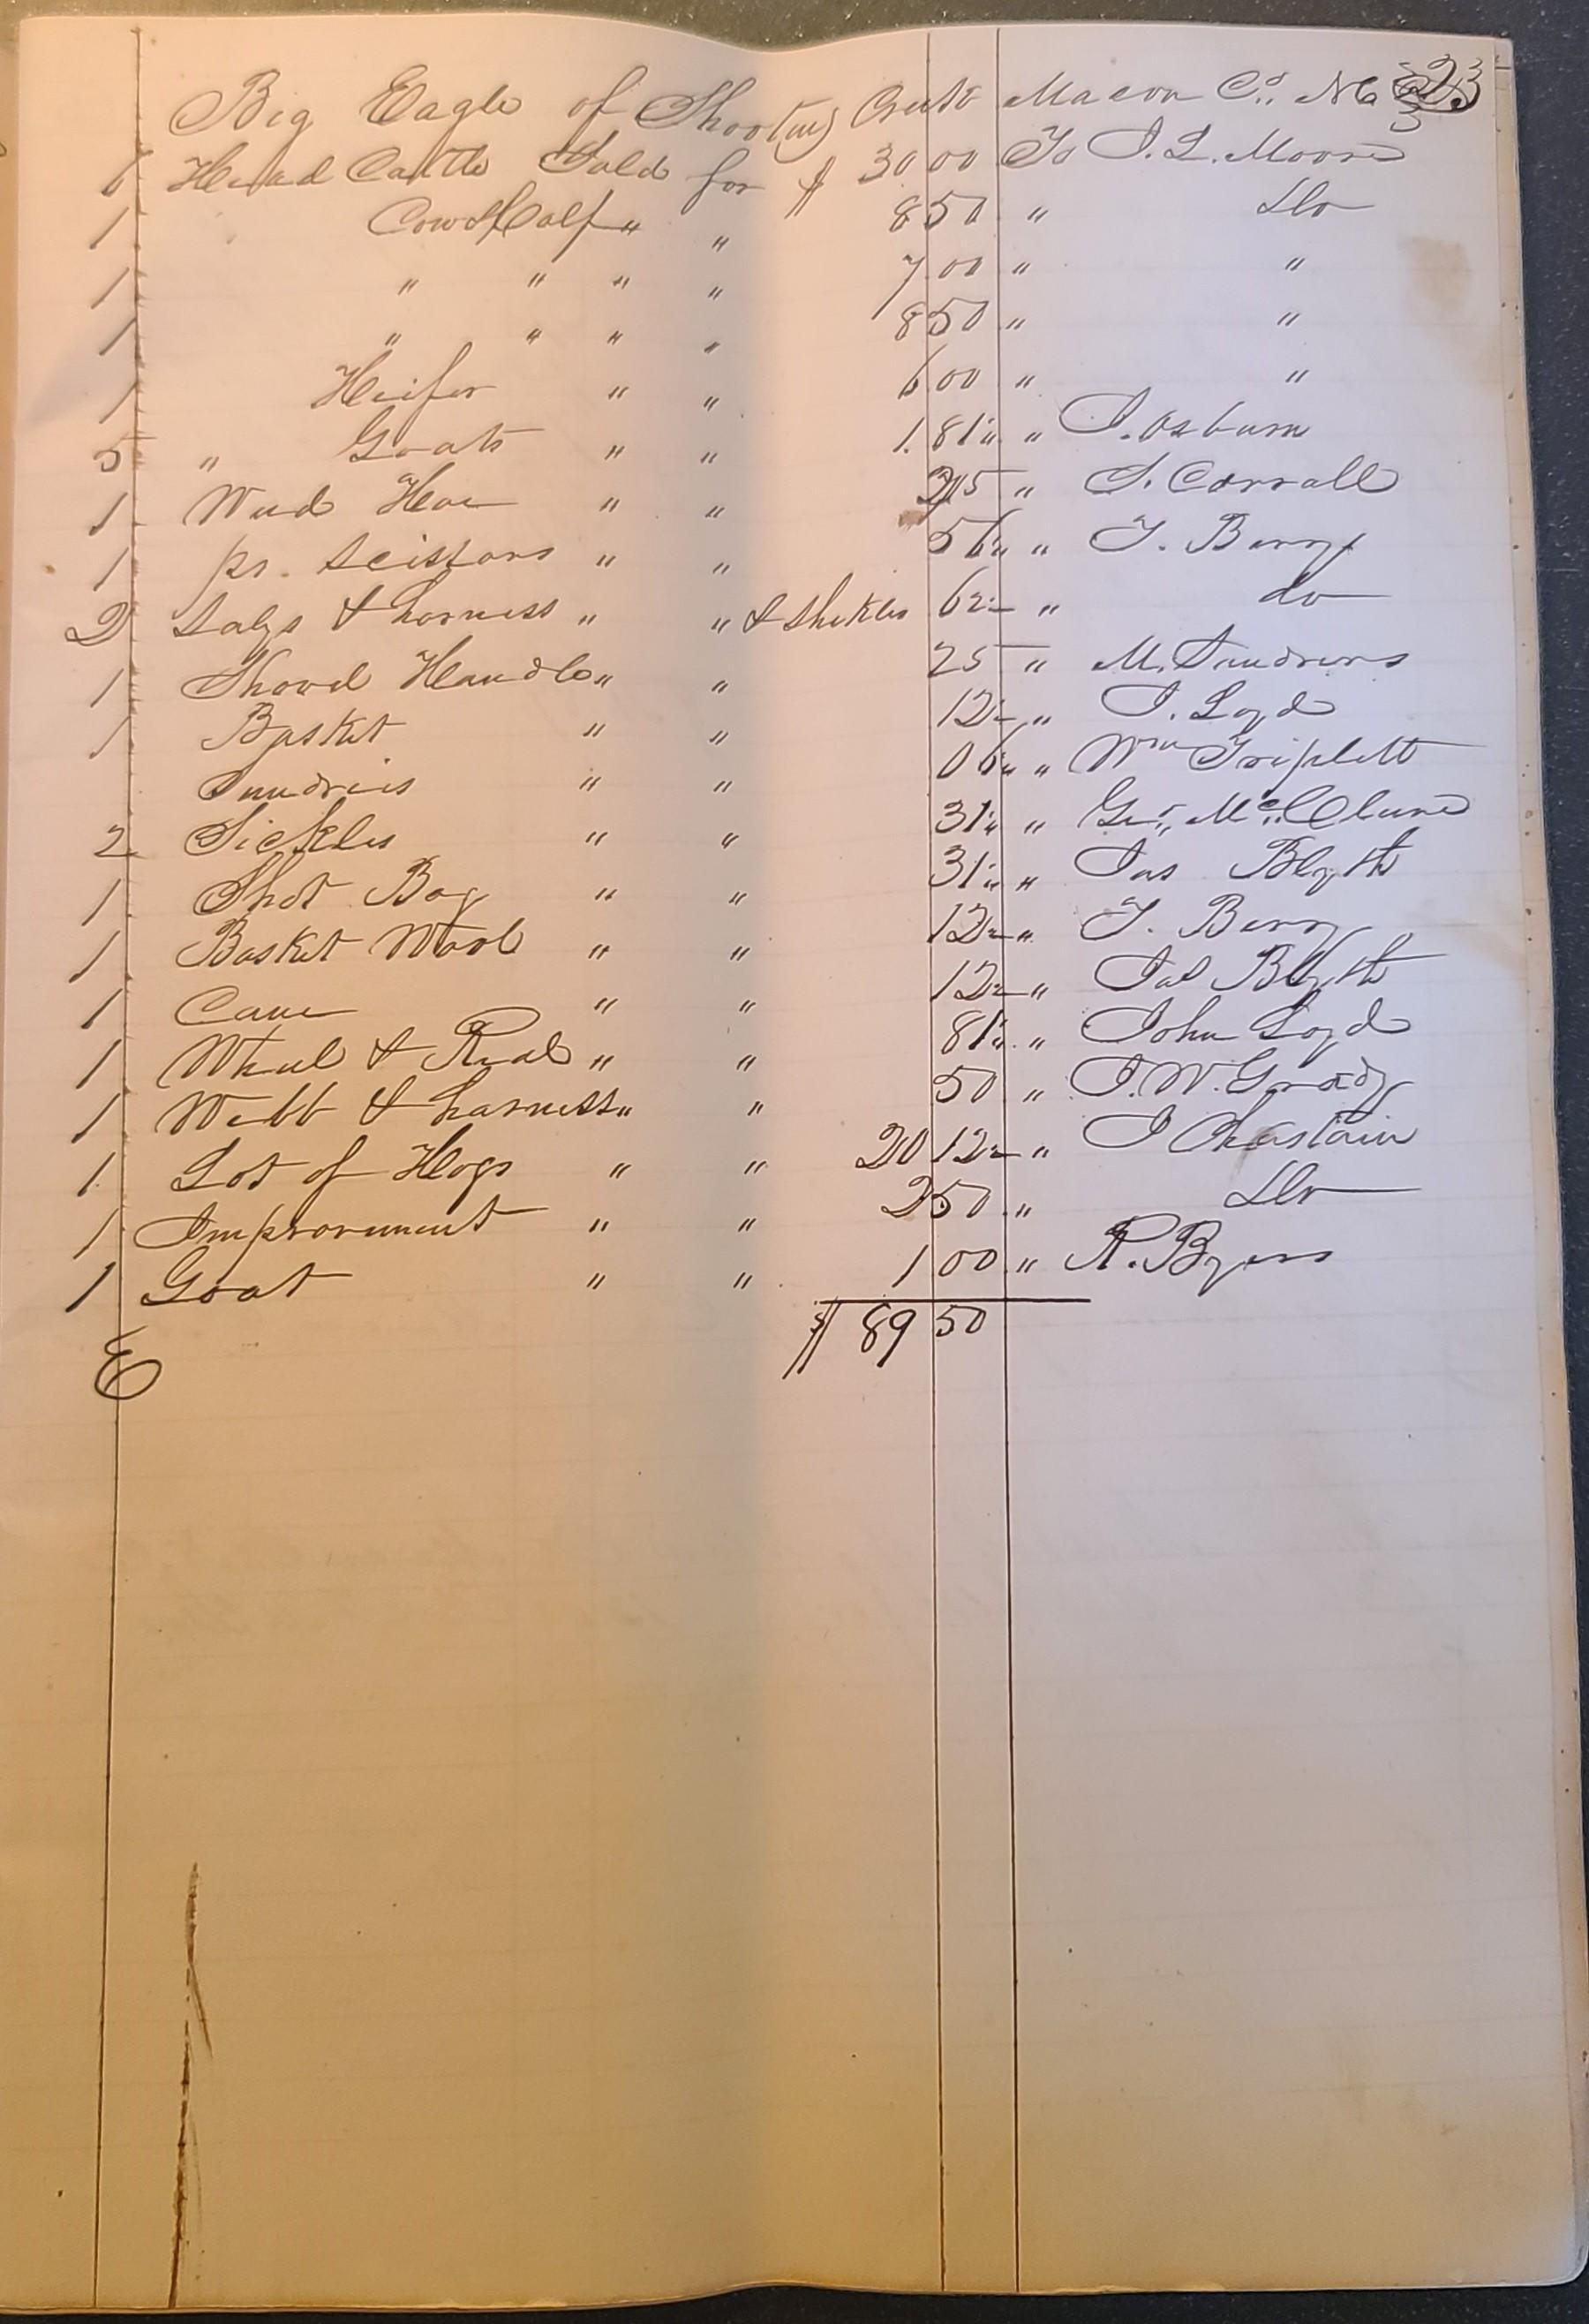 Big Eagle of Shooting Creek Macon Co., NC 23
6 Head Cattle Sold for $ 30 00 To J. L. Moore
1 Cow & Calf " " 8 50 " Do
1 " " " " 7 00 " "
1 " " " " 8 50 " "
1 Heifer " " 6 00 " "
5 " Goats " " 1. 81¼ " J. Osburn
1 Weed Hoe " " " J. Corrall
1 pr. Scissors " " 56¼ " T. Berry
2 Slays & harness " " & Shekles 62½ " do
1 Shovel Handle " " 25 " M. Sundrens
1 Basket " " 12½ " J. Loyd
Sundries " " 06¼ " Wm Triplett
2 Sickles " " 31¼ " Geo. McClure
1 Shot Bag " " 31¼ " Jas Blyth
1 Basket Wool " " 12½ " T. Berry
1 Cane " " 12½ " Jas Blyth
1 Wheel & Real " " 81¼ " John Loyd
1 Webb & harness " " 50 " J. W. Grady
1 Lot of Hogs " " 20 12½ " J Chastain
1 Improvement " " 2 50 " Do
1 Goat " " 1 00 " R. Byers
$ 89 50
E